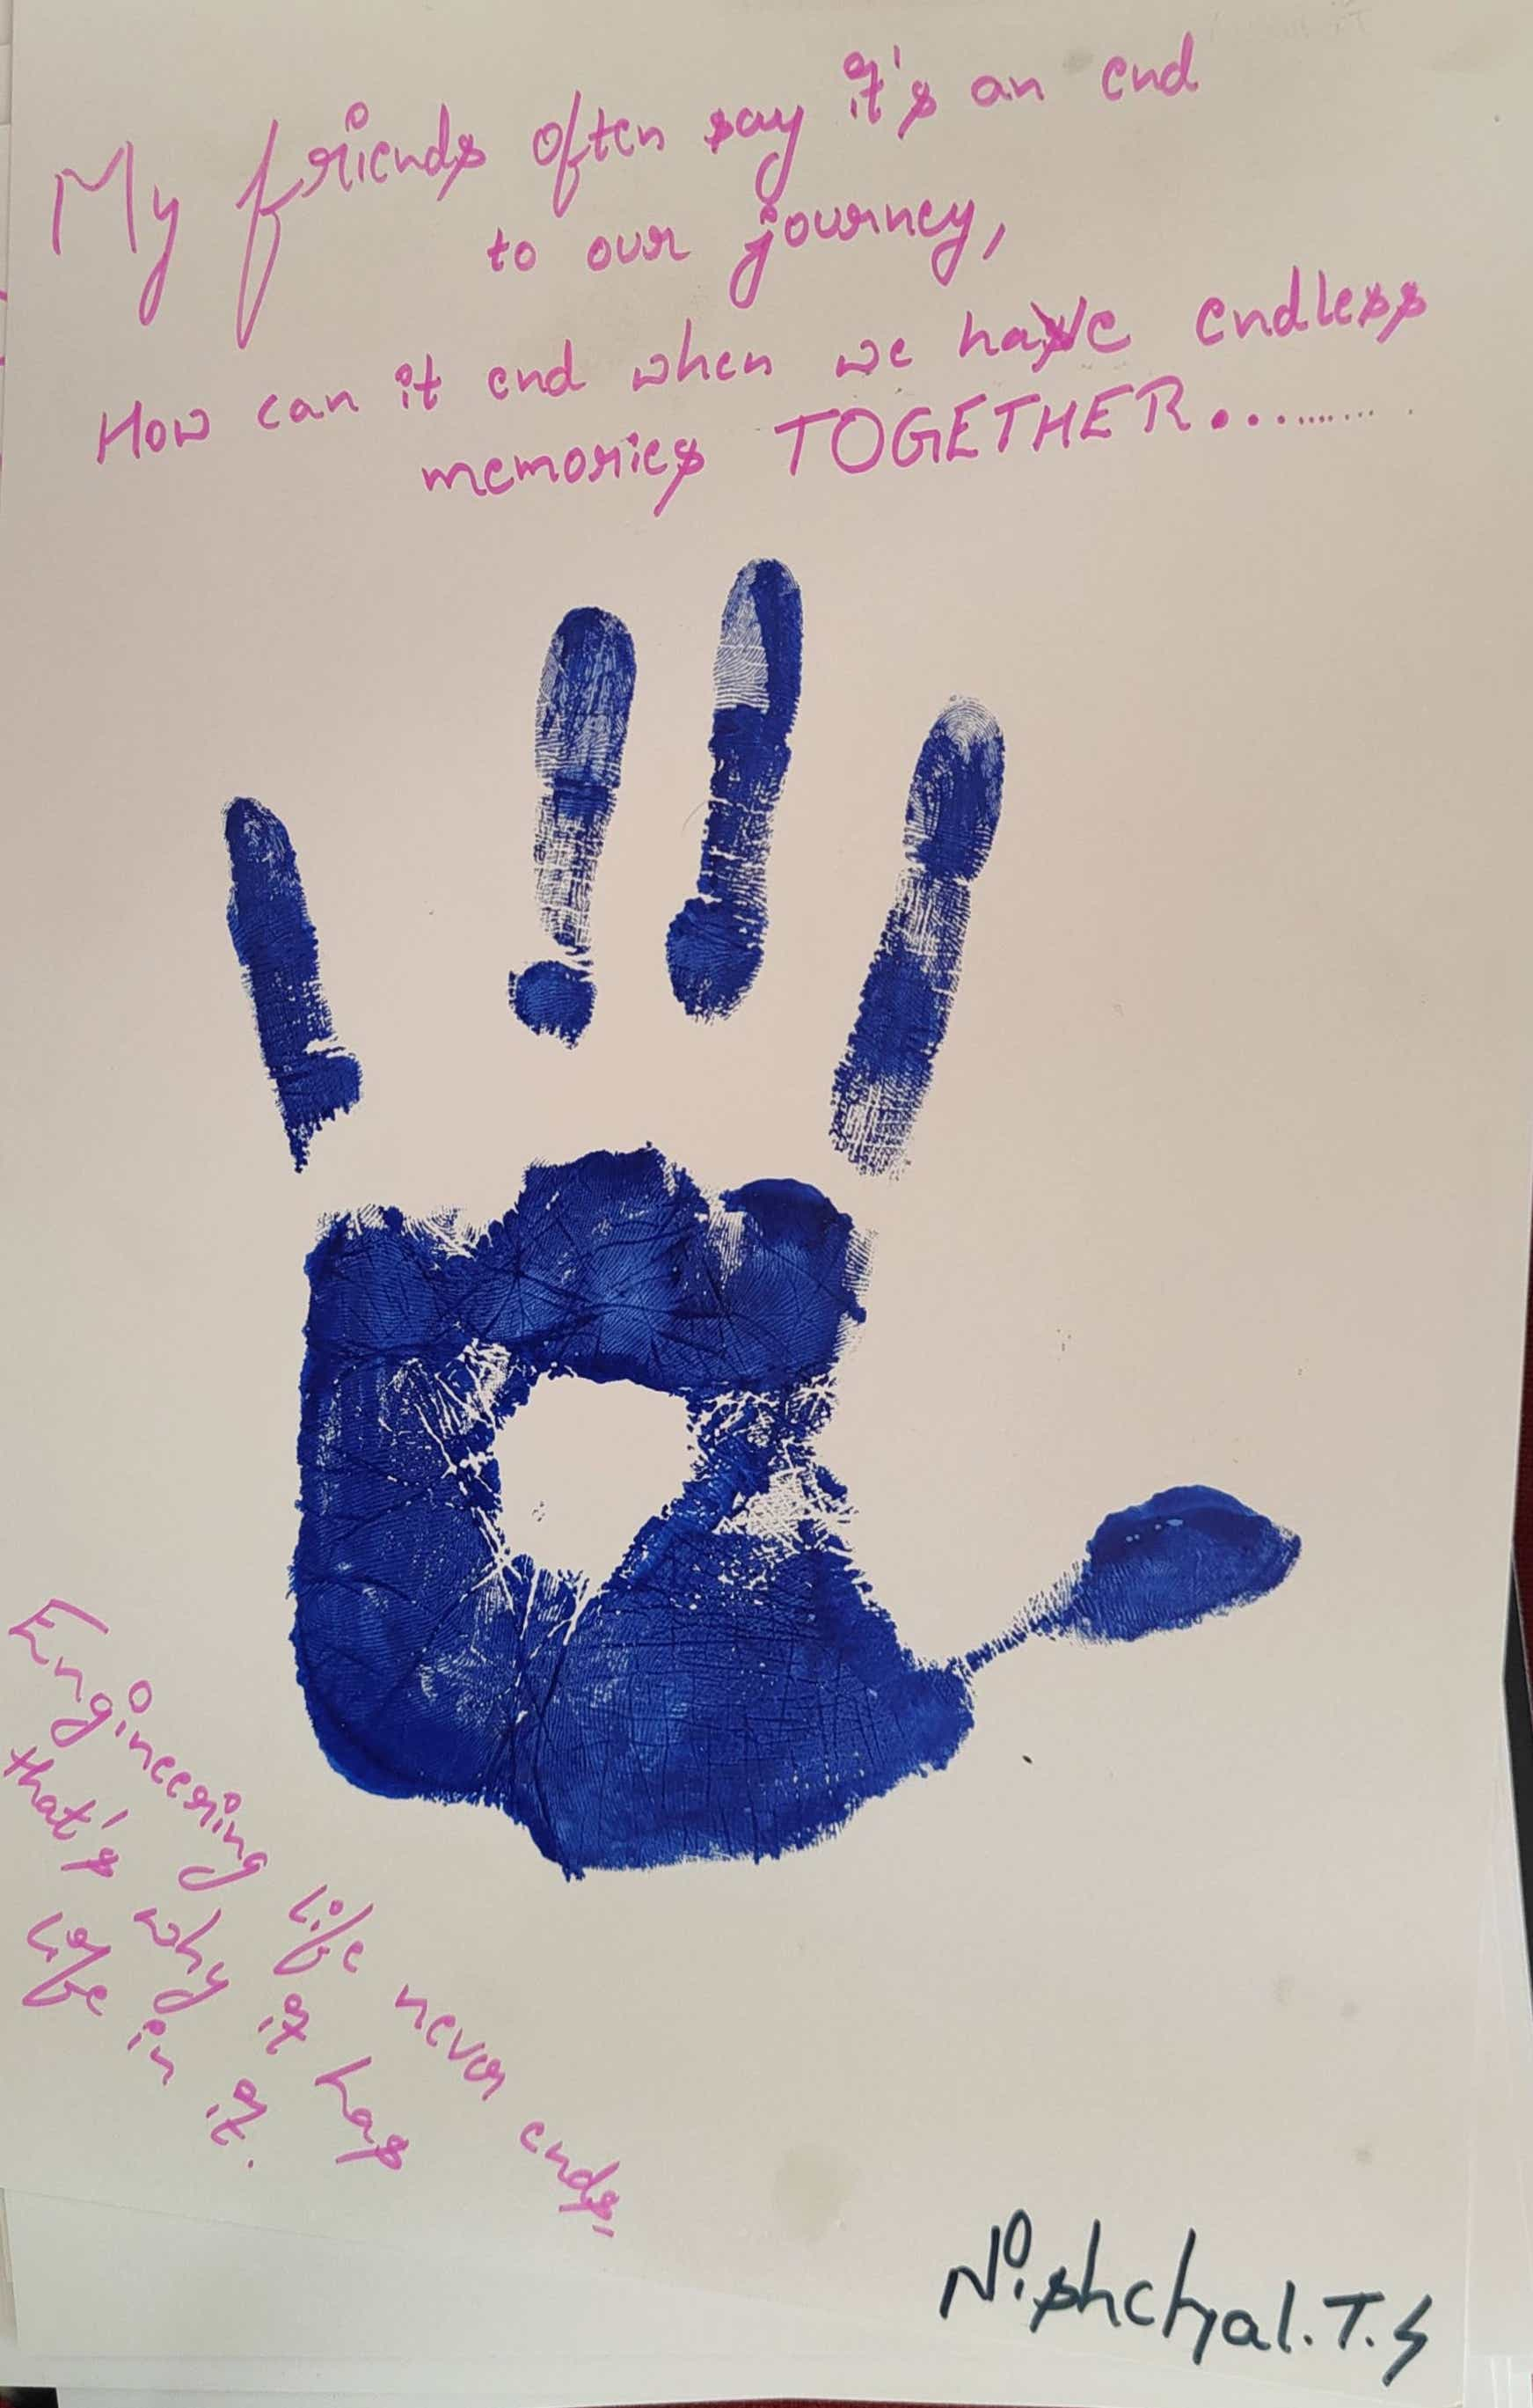 My friends often say it's an end
to our journey,
How can it end when we have endless
memories TOGETHER..........
Engineering life never ends,
that's why it has
life in it.
Nishchal.T.S